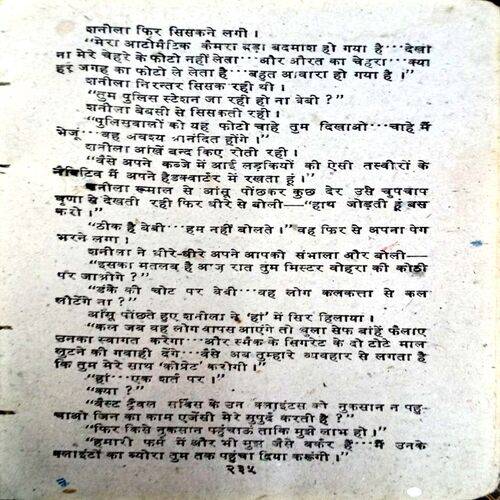 शनीला फिर सिसकने लगी ।
"मेरा आटोमैटिक कैमरा बड़ा बदमाश हो गया है···देखो
ना मेरे चेहरे के फोटो नहीं लेता···और औरत का चेहरा···क्या
हर जगह का फोटो ले लेता है···बहुत आवारा हो गया है ।"
शनीला निरन्तर सिसक रही थी ।
"तुम पुलिस स्टेशन जा रही हो ना बेबी ?"
शनीला बेबसी से सिसकती रही ।
"पुलिसवालों को यह फोटो चाहे तुम दिखाओ···चाहे मैं
भेजूं···वह अवश्य आनंदित होंगे ।"
शनीला आंखें बन्द किए रोती रही ।
"वैसे अपने कब्जे में आई लड़कियों की ऐसी तस्वीरों के
नैगिटिव मैं अपने हैडक्वार्टर में रखता हूं ।"
शनीला रूमाल से आंसू पोंछकर कुछ देर उसे चुपचाप
घृणा से देखती रही फिर धीरे से बोली—"हाथ जोड़ती हूं बस
करो ।"
"ठीक है बेबी···हम नहीं बोलते ।" वह फिर से अपना पेग
भरने लगा ।
शनीला ने धीरे-धीरे अपने आपको संभाला और बोली—
"इसका मतलब है आज रात तुम मिस्टर वोहरा की कोठी
पर जाओगे ?"
"डंके की चोट पर बेबी···वह लोग कलकत्ता से कल
लौटेंगे ना ?"
आंसू पोंछते हुए शनीला ने 'हां' में सिर हिलाया ।
"कल जब वह लोग वापस आएंगे तो खुला सेफ बांहें फैलाए
उनका स्वागत करेगा···और स्मैक के सिगरेट के दो टोटे माल
लुटने की गवाही देंगे···वैसे अब तुम्हारे व्यवहार से लगता है
कि तुम मेरे साथ 'कोप्रेट' करोगी ।"
"हां···एक शर्त पर ।"
"क्या ?"
"बैस्ट ट्रैवल सर्विस के उन क्लाइंटस को नुकसान न पहु-
चाओ जिन का काम एजेंसी मेरे सुपुर्द करती है ?"
"फिर किसे नुकसान पहुंचाऊं ताकि मुझे लाभ हो ।"
"हमारी फर्म में और भी मुझ जैसे वर्कर हैं···मैं उनके
क्लाइंटों का ब्योरा तुम तक पहुंचा दिया करूंगी ।"
२३५